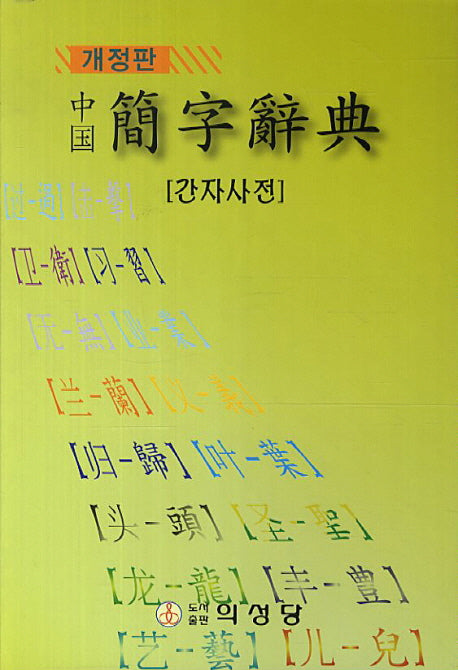 개정판
中国 簡字辭典
[간자사전]
【过-過】
【卫-衛】【习-習】
【无-無】【业-業】
【兰-蘭】【义-義】
【归-歸】【叶-葉】
【头-頭】【圣-聖】
【龙-龍】【丰-豊】
도서출판 의성당
【艺-藝】【儿-兒】